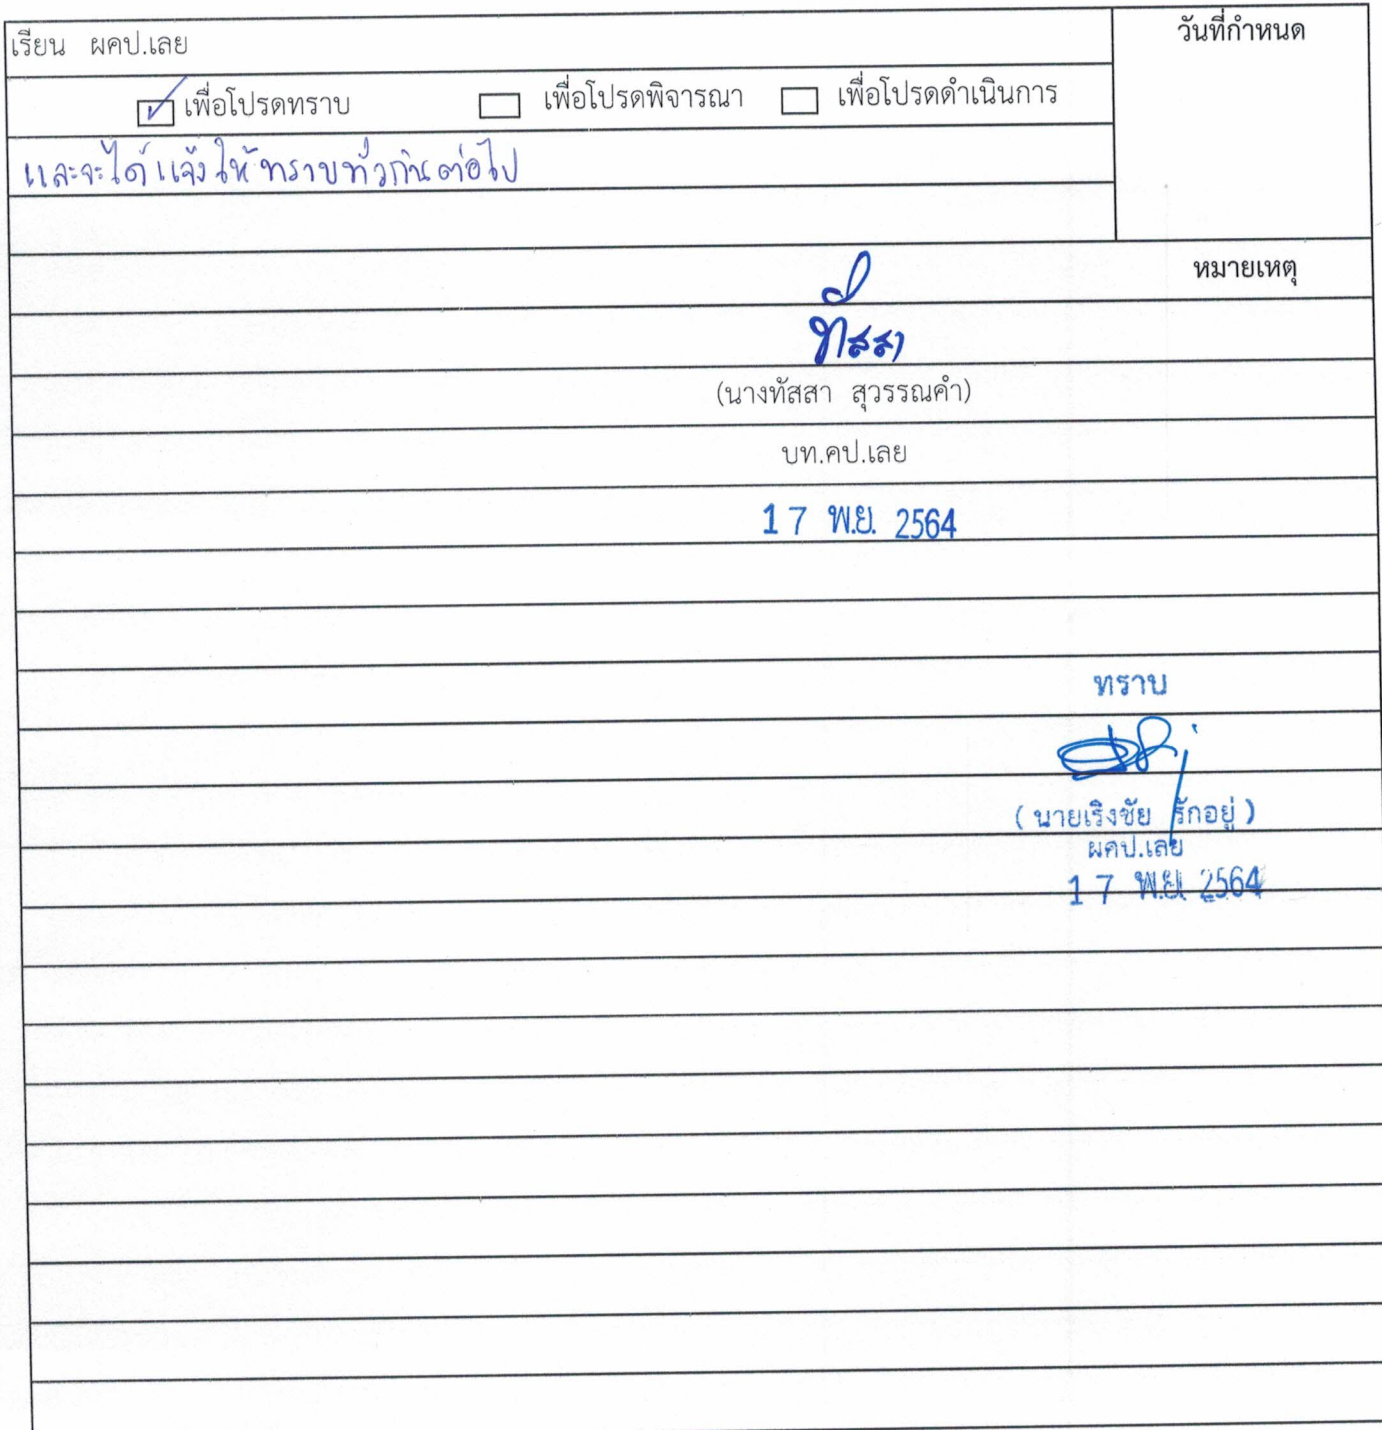 เรียน ผคป.เลย
วันที่กำหนด
☑ เพื่อโปรดทราบ ☐ เพื่อโปรดพิจารณา ☐ เพื่อโปรดดำเนินการ
และจะได้แจ้งให้ทราบทั่วกันต่อไป
หมายเหตุ
ทัสสา
(นางทัสสา สุวรรณคำ)
บท.คป.เลย
17 พ.ย. 2564
ทราบ
(นายเริงชัย รักอยู่)
ผคป.เลย
17 พ.ย. 2564